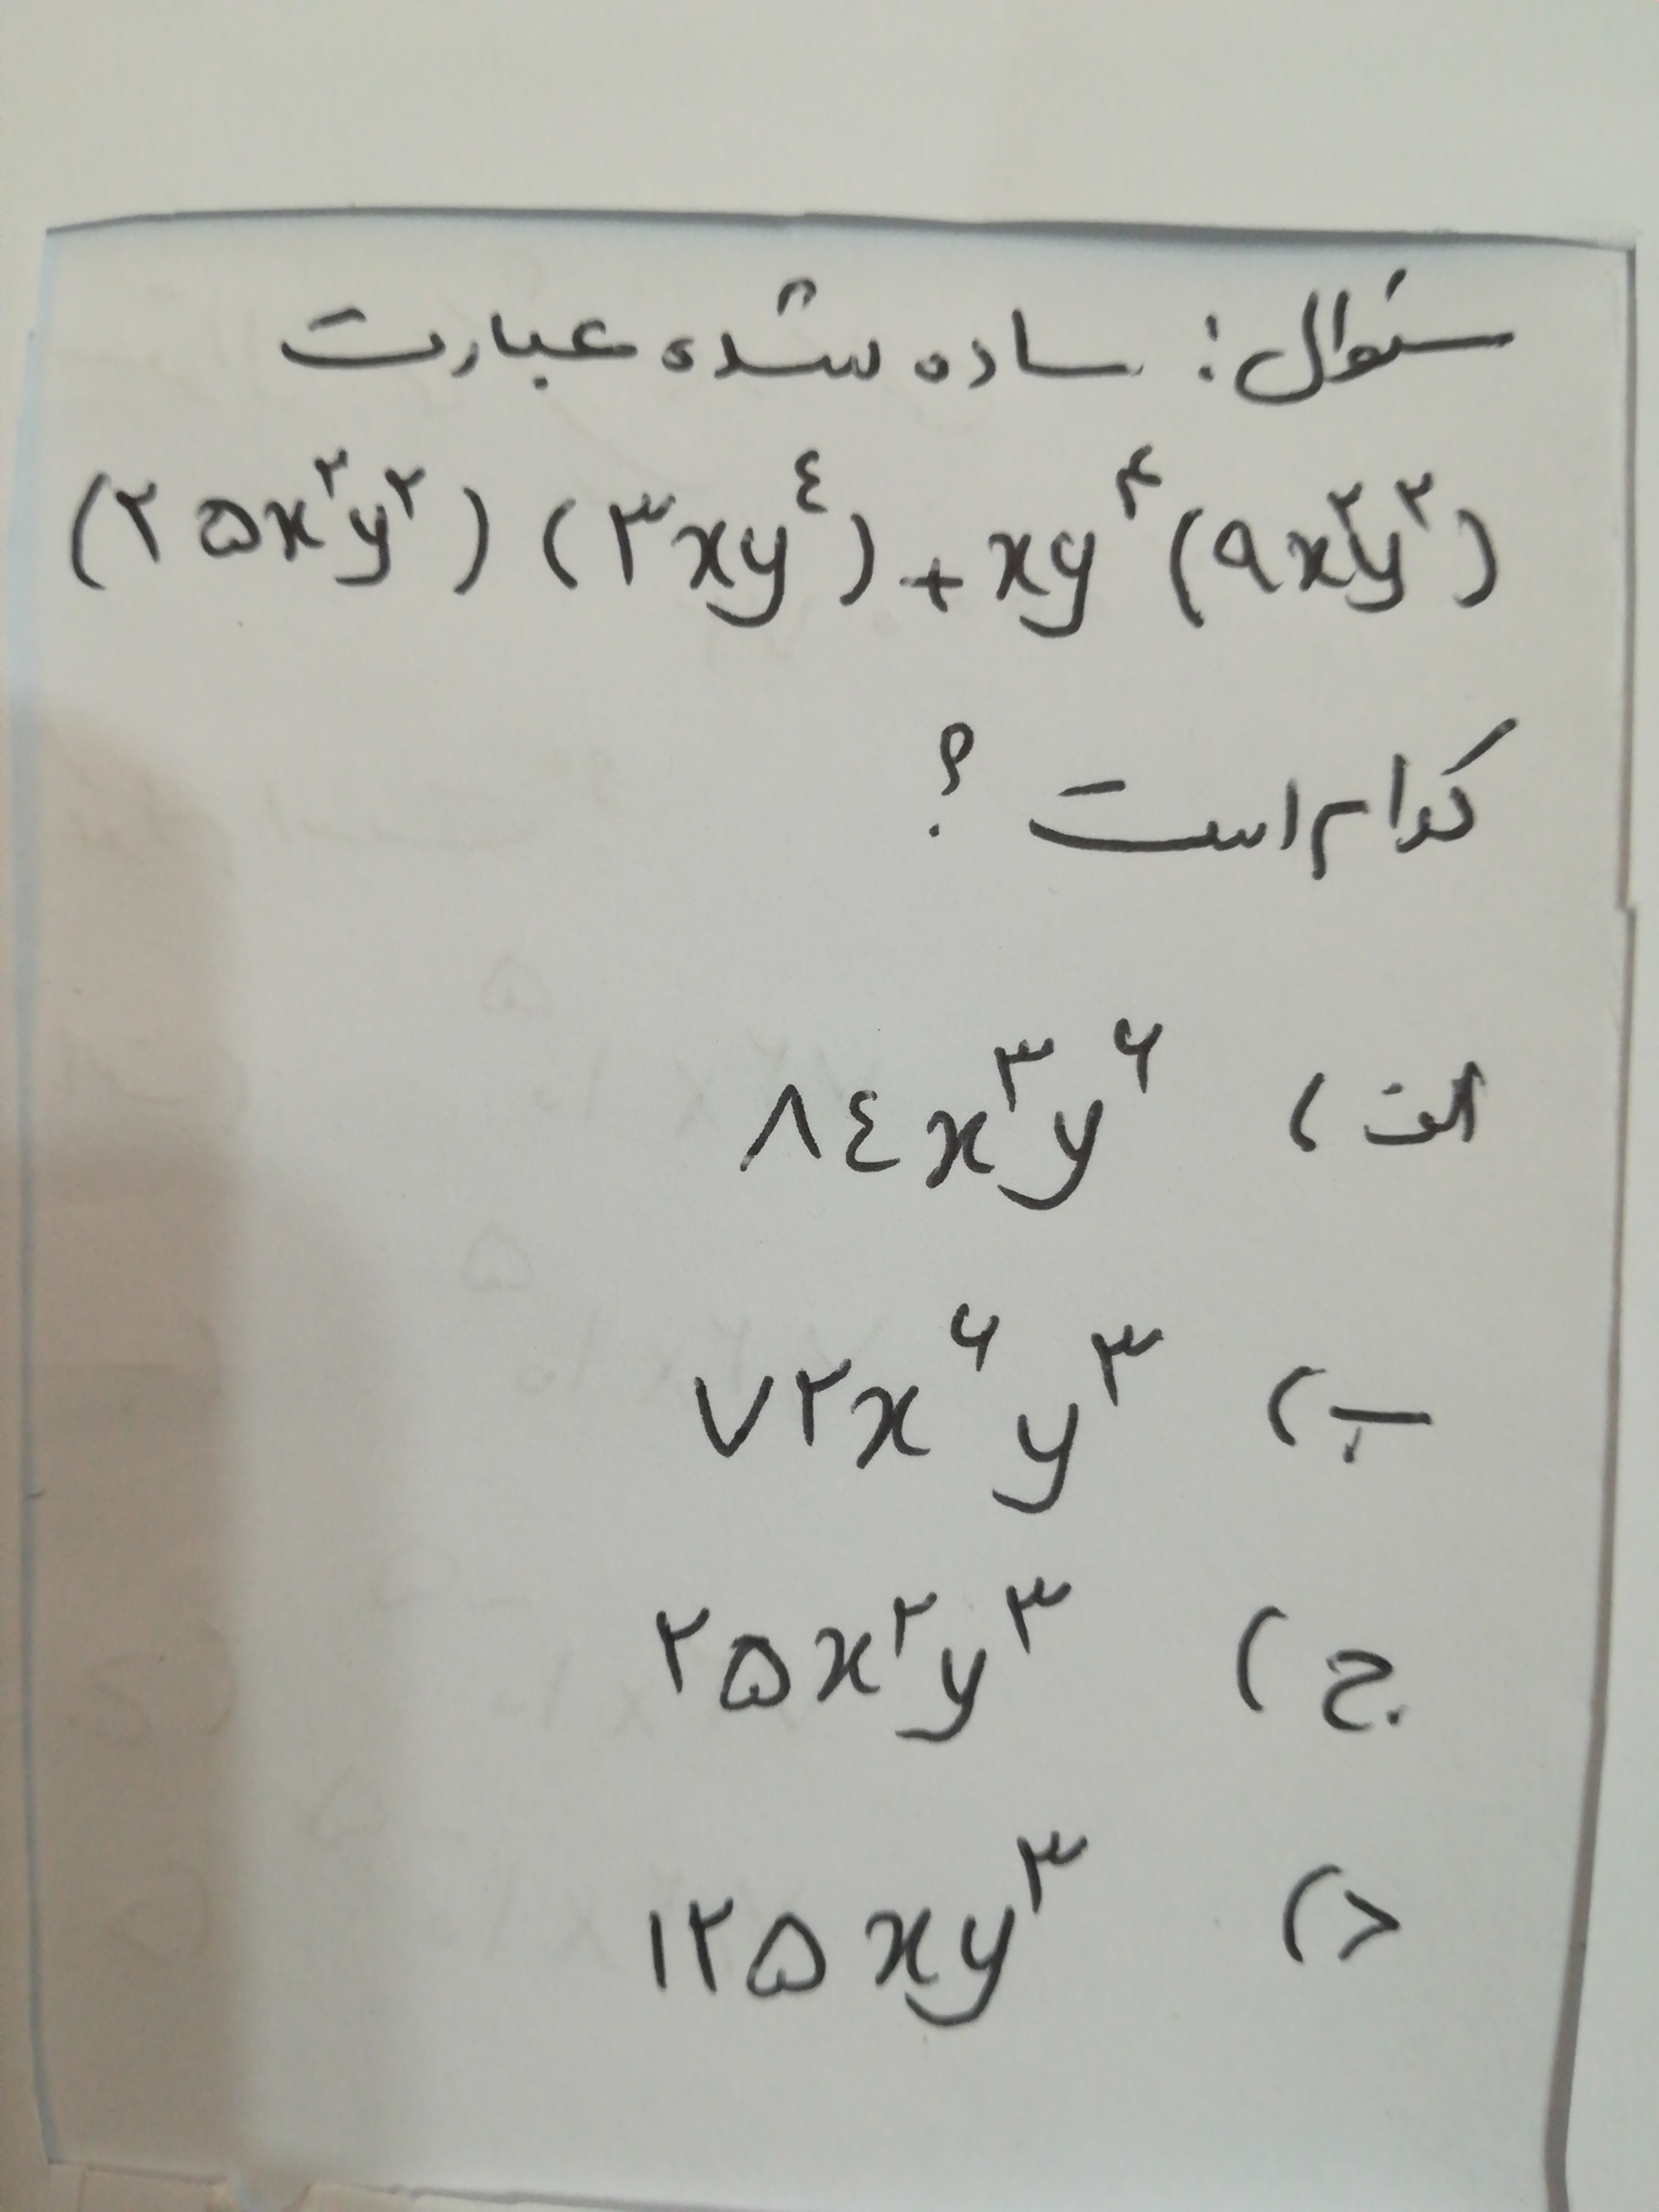 سئوال: ساده شده عبارت
(۲۵x²y²)(۳xy⁴)+xy⁴(۹x²y²)
کدام است؟
الف) ۸٤x³y⁶
ب) ۷۲x⁶y³
ج) ۲۵x²y³
د) ۱۲۵xy³